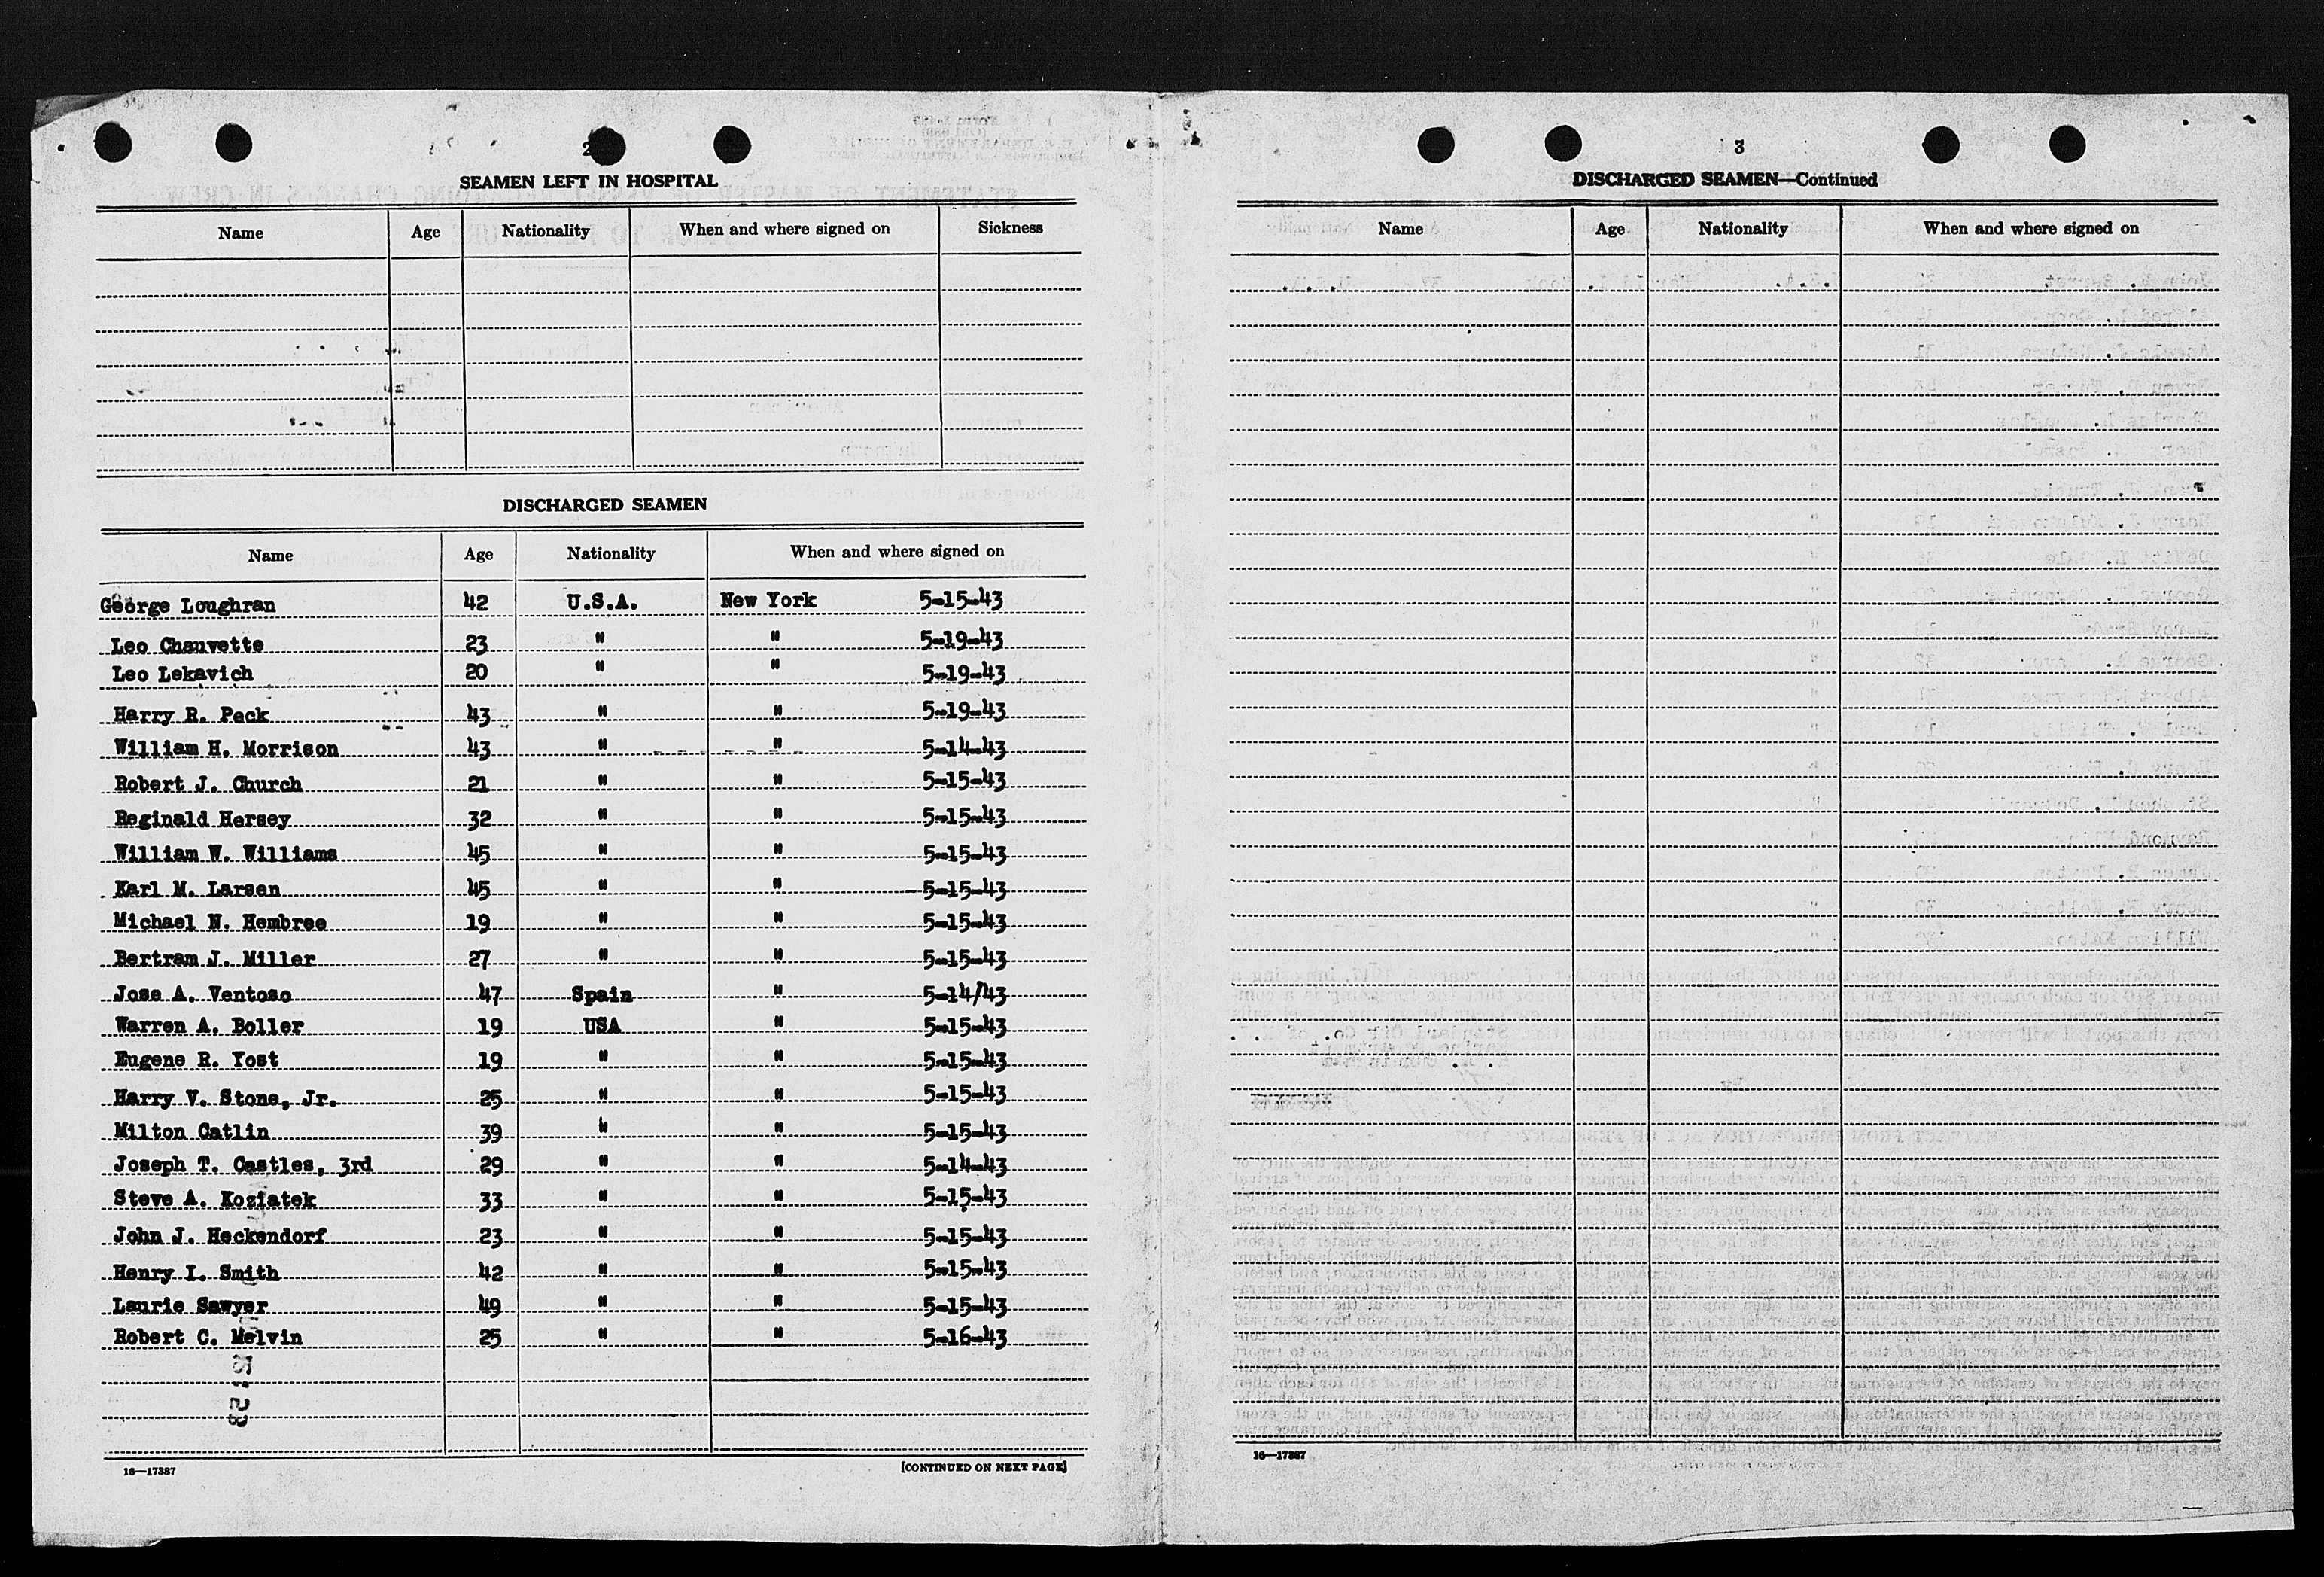 2
SEAMEN LEFT IN HOSPITAL
Name Age Nationality When and where signed on Sickness
DISCHARGED SEAMEN
Name Age Nationality When and where signed on
George Loughran 42 U.S.A. New York 5-15-43
Leo Chauvette 23 " " 5-19-43
Leo Lekavich 20 " " 5-19-43
Harry R. Peck 43 " " 5-19-43
William H. Morrison 43 " " 5-14-43
Robert J. Church 21 " " 5-15-43
Reginald Hersey 32 " " 5-15-43
William W. Williams 45 " " 5-15-43
Karl M. Larsen 45 " " 5-15-43
Michael N. Hembree 19 " " 5-15-43
Bertram J. Miller 27 " " 5-15-43
Jose A. Ventoso 47 Spain " 5-14/43
Warren A. Boller 19 USA " 5-15-43
Eugene R. Yost 19 " " 5-15-43
Harry V. Stone, Jr. 25 " " 5-15-43
Milton Catlin 39 " " 5-15-43
Joseph T. Castles, 3rd 29 " " 5-14-43
Steve A. Koziatek 33 " " 5-15-43
John J. Heckendorf 23 " " 5-15-43
Henry I. Smith 42 " " 5-15-43
Laurie Sawyer 49 " " 5-15-43
Robert C. Melvin 25 " " 5-16-43
16—17387 [CONTINUED ON NEXT PAGE]
3
DISCHARGED SEAMEN—Continued
Name Age Nationality When and where signed on
16—17387